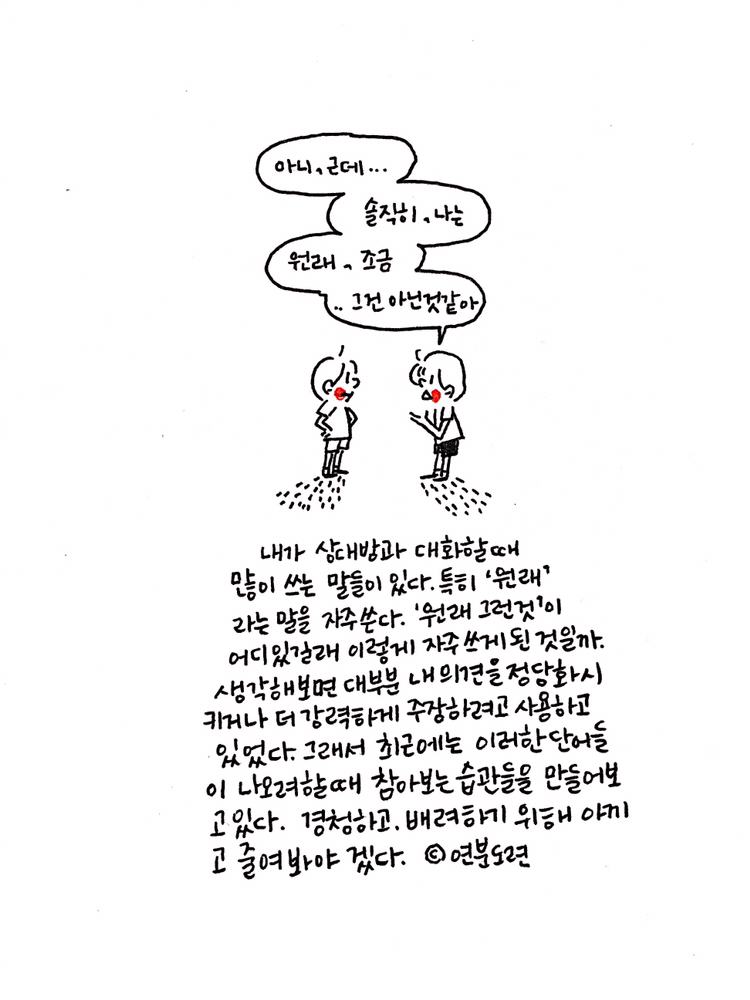 아니, 근데...
솔직히, 나는
원래, 조금
.. 그건 아닌것같아
내가 상대방과 대화할때
많이 쓰는 말들이 있다. 특히 '원래'
라는 말을 자주쓴다. '원래 그런것'이
어디있길래 이렇게 자주쓰게 된 것일까.
생각해보면 대부분 내 의견을 정당화시
키거나 더 강력하게 주장하려고 사용하고
있었다. 그래서 최근에는 이러한 단어들
이 나오려할때 참아보는 습관들을 만들어보
고있다. 경청하고, 배려하기 위해 아끼
고 줄여봐야 겠다. ©연분도련